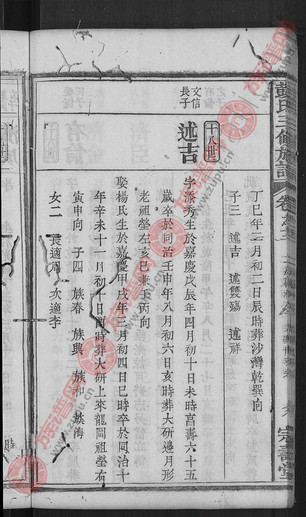 彭氏三修族譜
丁巳年二月初二日辰時葬沙灣乾巽向
子三 述吉 述雙殤 述祥
十八世
文信長子
述吉
字添秀生於嘉慶戊辰年四月初十日未時富壽六十五
歲卒於同治壬申年八月初六日亥時葬大研邊月形
老祖塋左亥巳兼壬丙向
娶楊氏生於嘉慶甲戌年三月初四日巳時卒於同治十
年辛未十一月初十日酉時葬大研上來龍岡祖塋右
寅申向 子四 族春 族興 族和 族海
女二 長適周 次適李